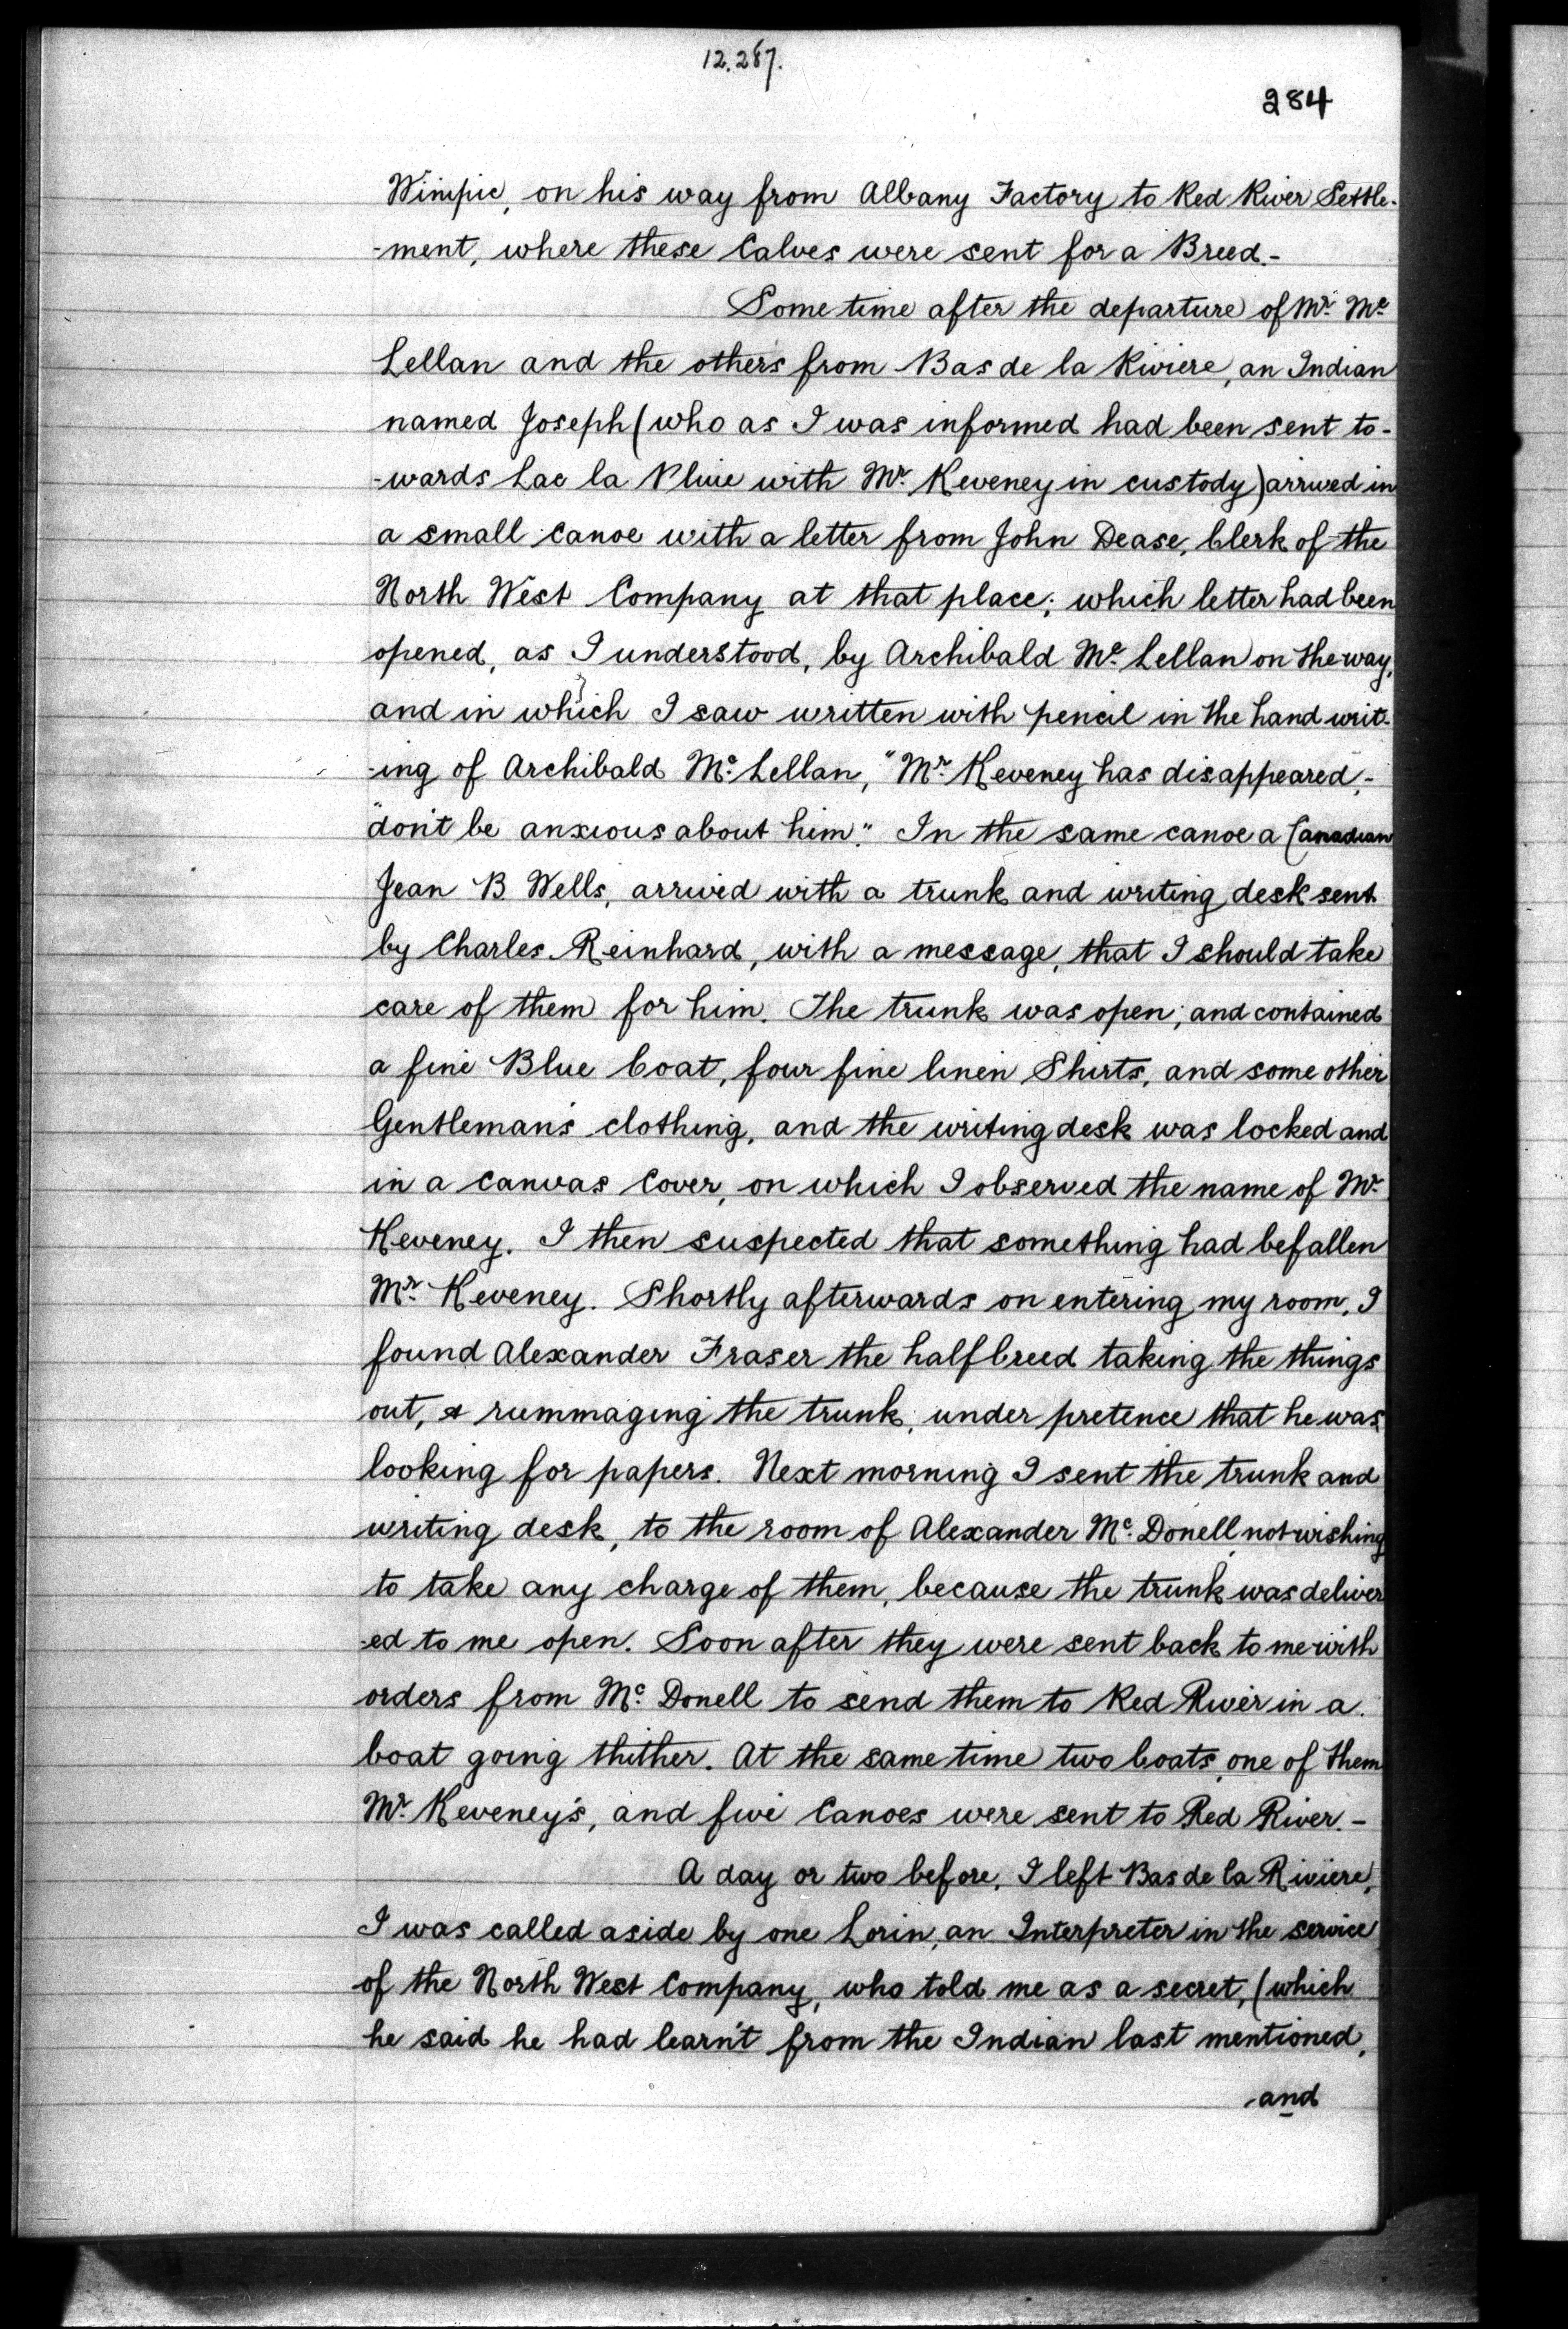 12.287.
284
Winipic, on his way from Albany Factory to Red River Settle-
-ment, where these Calves were sent for a Breed.-
Some time after the departure of Mr. Mc
Lellan and the others from Bas de la Riviere, an Indian
named Joseph (who as I was informed had been sent to-
-wards Lac la Pluie with Mr. Keveney in custody) arrived in
a small canoe with a letter from John Dease, Clerk of the
North West Company at that place; which letter had been
opened, as I understood, by Archibald Mc. Lellan on the way,
and in which I saw written with pencil in the hand writ-
-ing of Archibald Mc. Lellan, "Mr. Keveney has disappeared,-
"don't be anxious about him." In the same canoe a Canadian
Jean B. Wells, arrived with a trunk and writing desk sent
by Charles Reinhard, with a message, that I should take
care of them for him. The trunk was open; and contained
a fine Blue Coat, four fine linen Shirts, and some other
Gentleman's clothing, and the writing desk was locked and
in a Canvas Cover, on which I observed the name of Mr.
Keveney. I then suspected that something had befallen
Mr. Keveney. Shortly afterwards on entering my room, I
found Alexander Fraser the halfbreed taking the things
out, & rummaging the trunk, under pretence that he was
looking for papers. Next morning I sent the trunk and
writing desk, to the room of Alexander Mc. Donell, not wishing
to take any charge of them, because the trunk was deliver
-ed to me open. Soon after they were sent back to me with
orders from Mc. Donell to send them to Red River in a
boat going thither. At the same time two boats, one of them
Mr. Keveney's, and five Canoes were sent to Red River.-
A day or two before, I left Bas de la Riviere,
I was called aside by one Lorin, an Interpreter in the service
of the North West Company, who told me as a secret, (which
he said he had learn't from the Indian last mentioned,
and